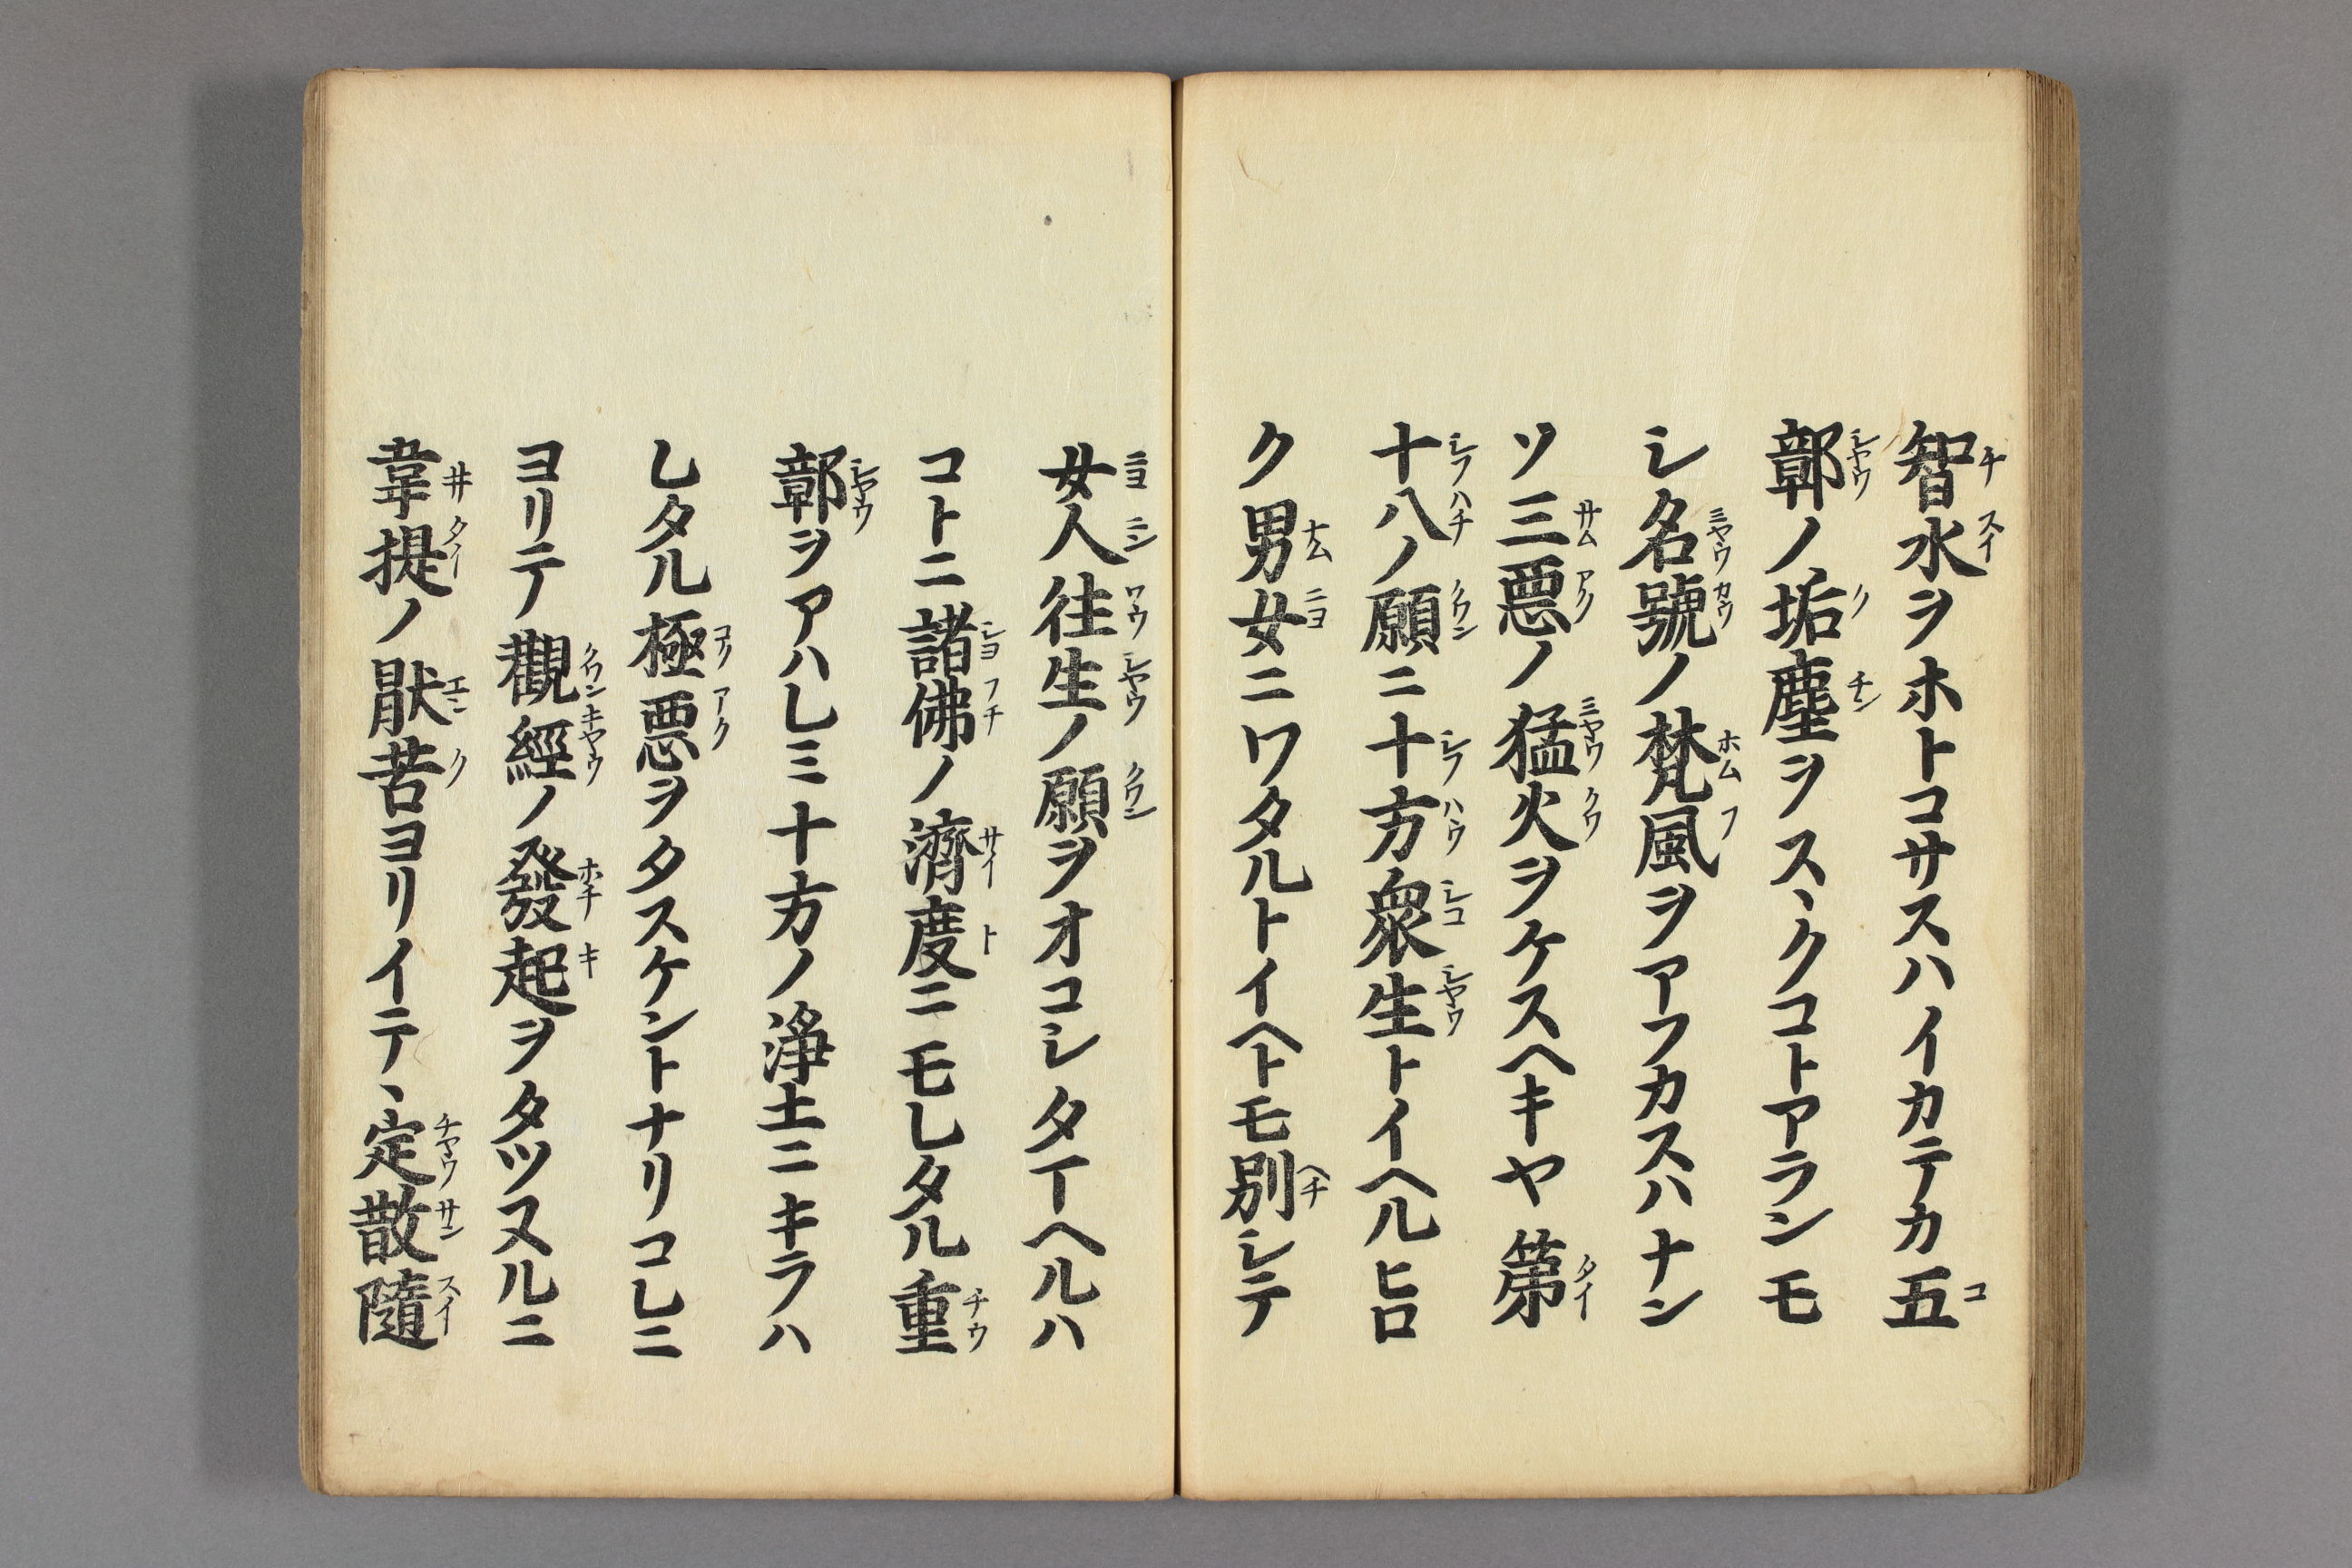 智水ヲホトコサスハイカテカ五
鄣ノ垢塵ヲスヽクコトアランモ
シ名號ノ梵風ヲアフカスハナン
ソ三悪ノ猛火ヲケスヘキヤ第
十八ノ願ニ十方衆生トイヘルヒロ
ク男女ニワタルトイヘトモ別シテ
女人往生ノ願ヲオコシタマヘルハ
コトニ諸佛ノ濟度ニモレタル重
鄣ヲアハレミ十方ノ淨土ニキラハ
レタル極悪ヲタスケントナリコレニ
ヨリテ觀經ノ發起ヲタツヌルニ
韋提ノ猒苦ヨリイテヽ定散隨